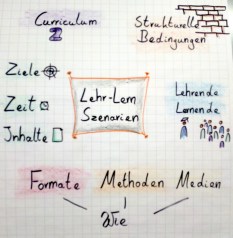 Curriculum
Strukturelle
Bedingungen
Ziele
Zeit
Inhalte
Lehr-Lern
Szenarien
Lehrende
Lernende
Formate
Methoden
Medien
Wie